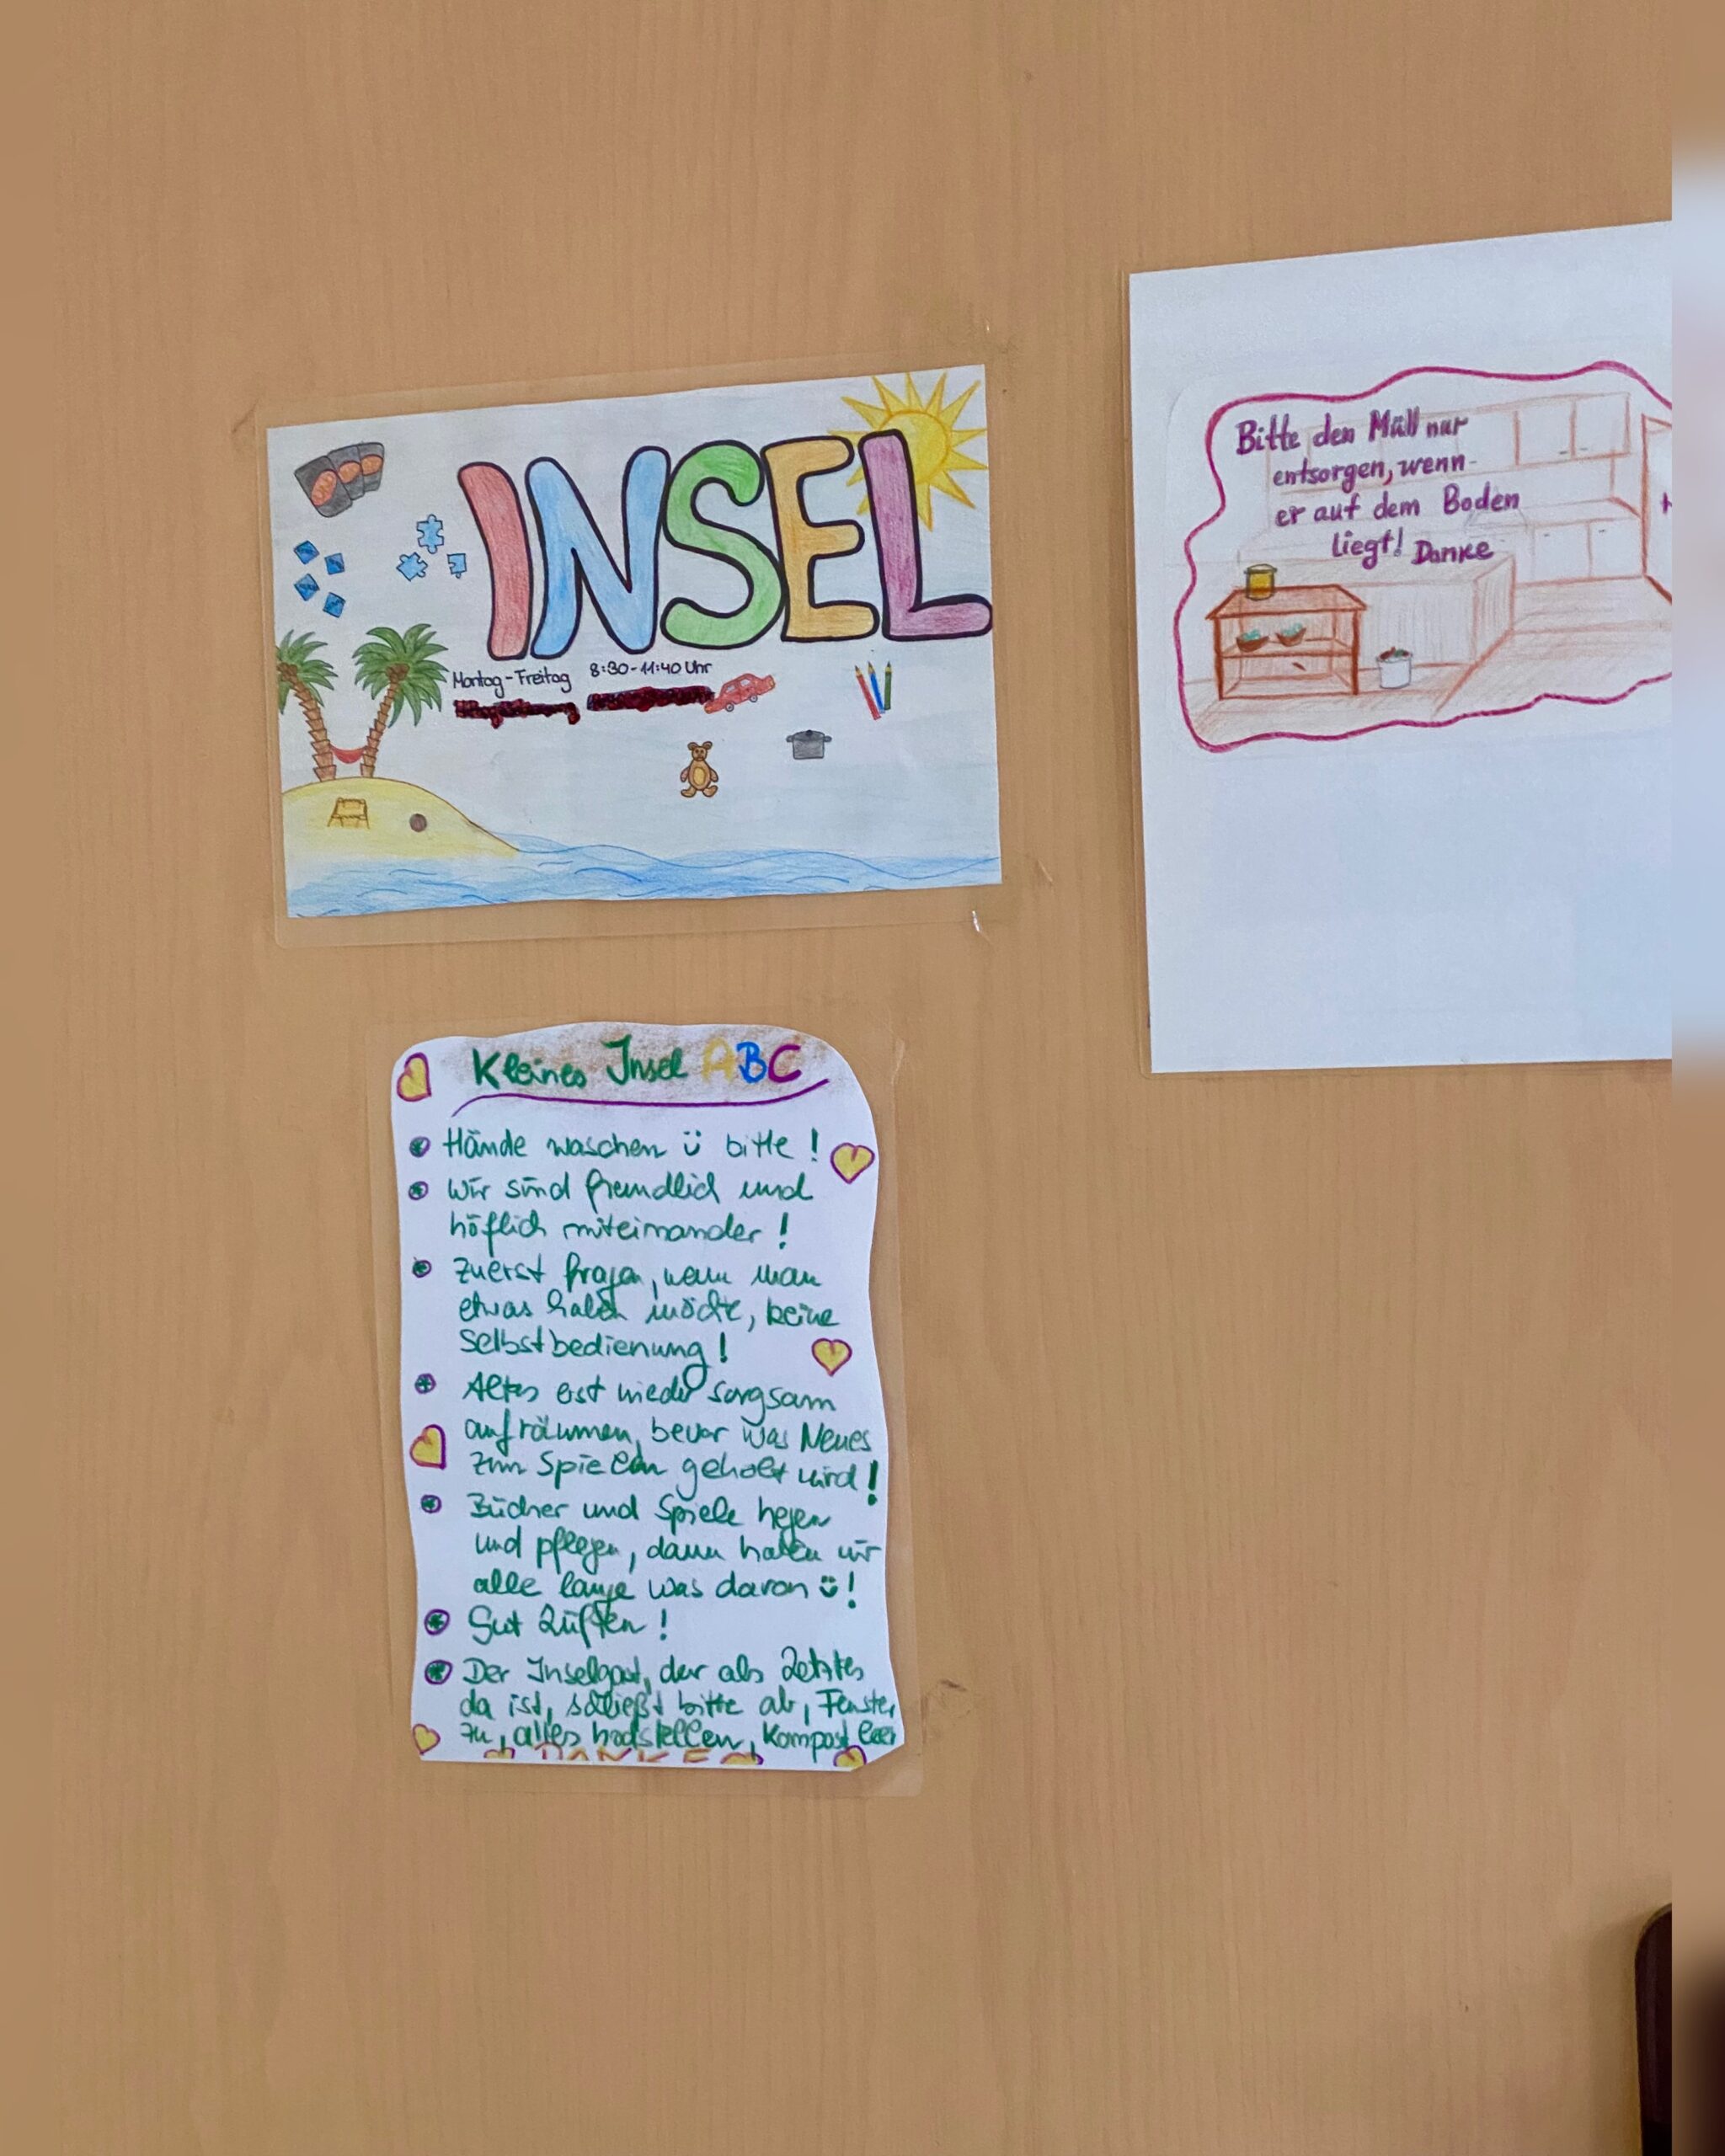 INSEL
Montag-Freitag 8:30-11:40 Uhr
Bitte den Müll nur
entsorgen, wenn
er auf dem Boden
liegt! Danke
Kleines Insel ABC
Hände waschen ü bitte!
Wir sind freundlich und
höflich miteinander!
Zuerst fragen, wenn man
etwas haben möchte, keine
Selbstbedienung!
Altes erst wieder sorgsam
aufräumen, bevor was Neues
zum Spielen geholt wird!
Bücher und Spiele hegen
und pflegen, dann haben wir
alle lange was davon ü!
Gut Lüften!
Der Inselgast, der als Letztes
da ist, schließt bitte ab, Fenster
zu, alles hochstellen, Kompost leer
DANKE